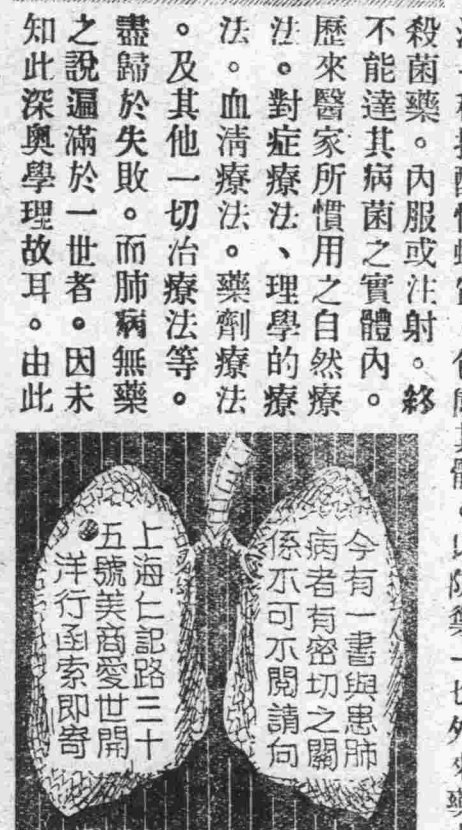 殺菌藥。內服或注射。終
不能達其病菌之實體內。
歷來醫家所慣用之自然療
法。對症療法、理學的療
法。血清療法。藥劑療法
。及其他一切治療法等。
盡歸於失敗。而肺病無藥
之說遍滿於一世者。因未
知此深奧學理故耳。由此
今有一書與患肺
病者有密切之關
係不可不閱請向
上海仁記路三十
五號美商愛世開
洋行函索即寄